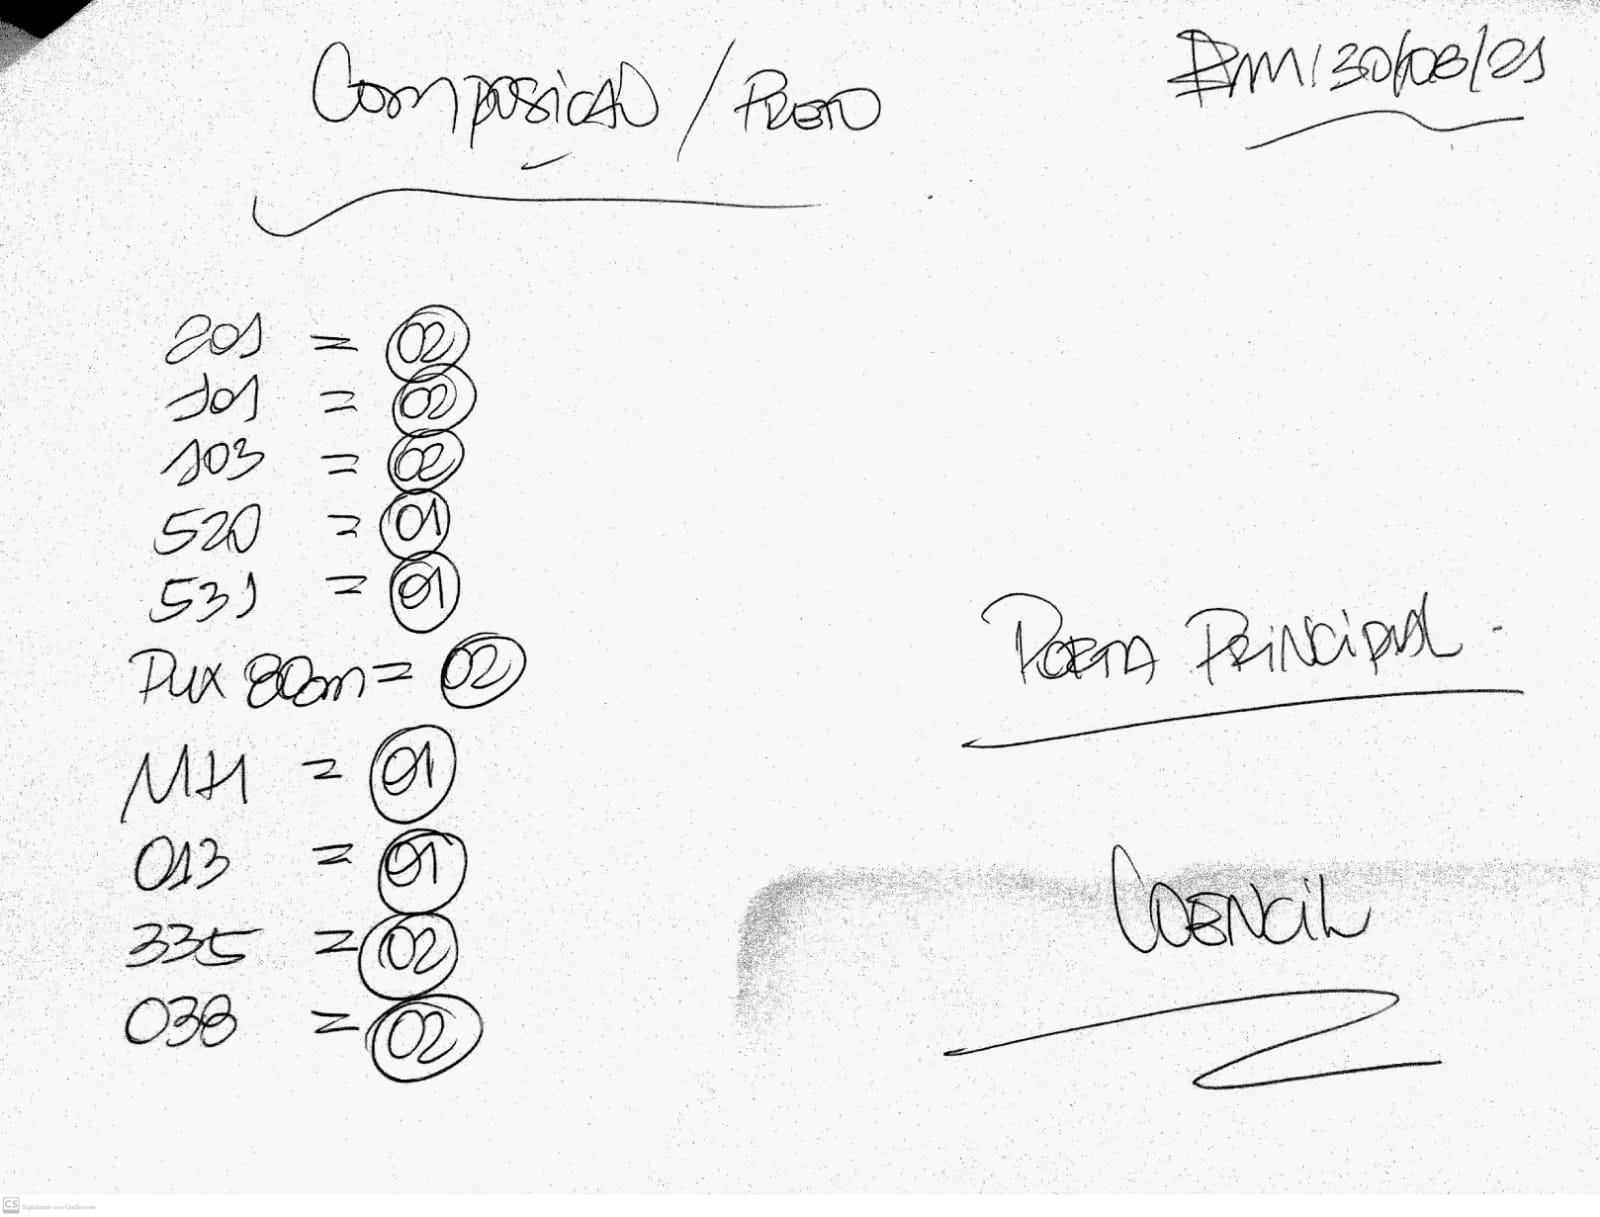 Composição / Preto
30/08/21
201 = 02
101 = 02
103 = 02
520 = 01
531 = 01
Pux 80cm = 02
MH = 01
013 = 01
335 = 02
038 = 02
Porta Principal
CS Digitalizado com CamScanner